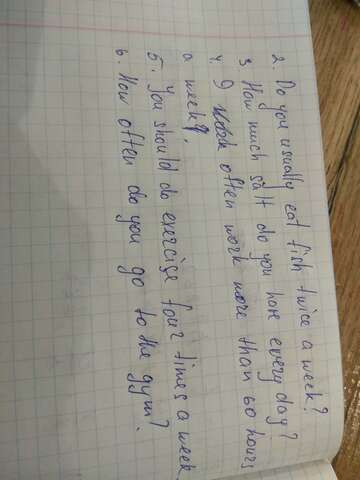 2. Do you usually eat fish twice a week?
3 How much salt do you have every day?
4. I often work more than 60 hours
a week.
5. You should do exercise four times a week.
6. How often do you go to the gym?